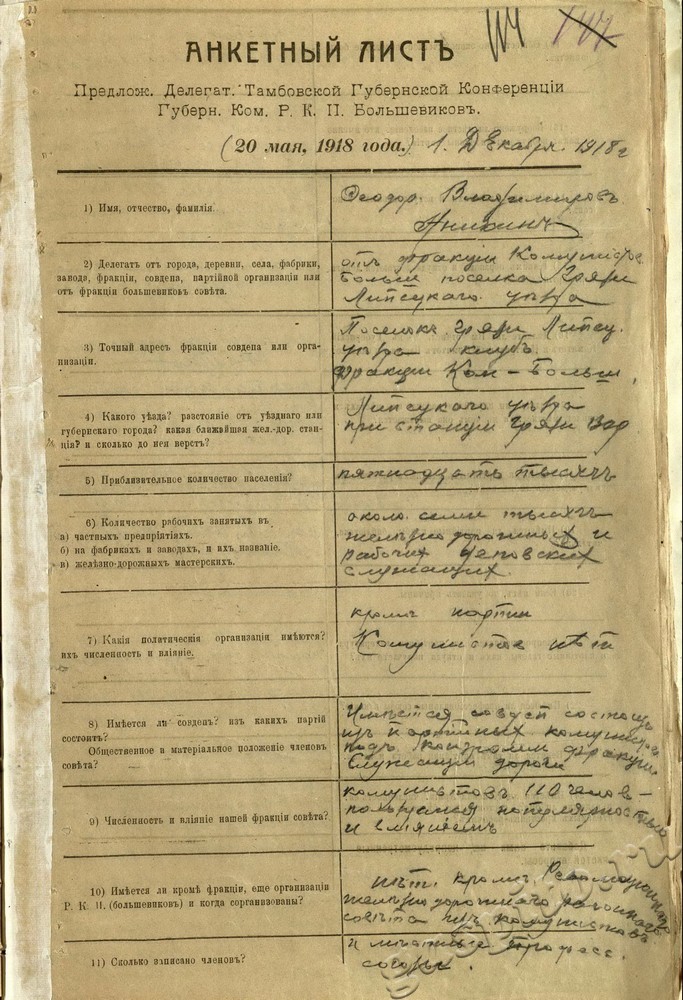 АНКЕТНЫЙ ЛИСТЪ
Предлож. Делегат. Тамбовской Губернской Конференціи
Губерн. Ком. Р. К. П. Большевиковъ.
(20 мая, 1918 года.) 1. Декабря. 1918 г
1) Имя, отчество, фамилія.
Феодор. Владимировъ
Аникинъ
2) Делегатъ отъ города, деревни, села, фабрики,
завода, фракціи, совдепа, партійной организаціи или
отъ фракціи большевиковъ совѣта.
отъ фракціи Комунистов
Больш поселка Грязи
Липецкаго уѣзда
3) Точный адресъ фракціи совдепа или орга-
низаціи.
Поселокъ Грязи Липец.
уѣзда клубъ
Фракціи Ком-Больш.
4) Какого уѣзда? разстояніе отъ уѣзднаго или
губернскаго города? какая ближайшая жел.-дор. стан-
ція? и сколько до нея верстъ?
Липецкаго уѣзда
при станціи Грязи
5) Приблизительное количество населенія?
пятнадцать тысячъ
6) Количество рабочихъ занятыхъ въ
а) частныхъ предпріятіяхъ.
б) на фабрикахъ и заводахъ, и ихъ названіе.
в) желѣзно-дорожныхъ мастерскихъ.
около семи тысячъ
желѣзно дорожных и
рабочих деповских
служащих
7) Какія политическія организаціи имѣются?
ихъ численность и вліяніе.
кромѣ партіи
Комунистов нѣтъ
8) Имѣется ли совдепъ? изъ какихъ партій
состоитъ?
Общественное и матеріальное положеніе членовъ
совѣта?
Имѣется совдеп состоящ
изъ партійных комунистов
подъ контролем фракціи
Служащіи дороги
9) Численность и вліяніе нашей фракціи совѣта?
комунистовъ 110 челов-
пользуемся популярностью
и вліяніемъ
10) Имѣется ли кромѣ фракціи, еще организація
Р. К. П. (большевиковъ) и когда сорганизованы?
нѣтъ кромѣ
желѣзно дорожнаго районнаго
совѣта изъ комунистовъ
и
11) Сколько записано членовъ?